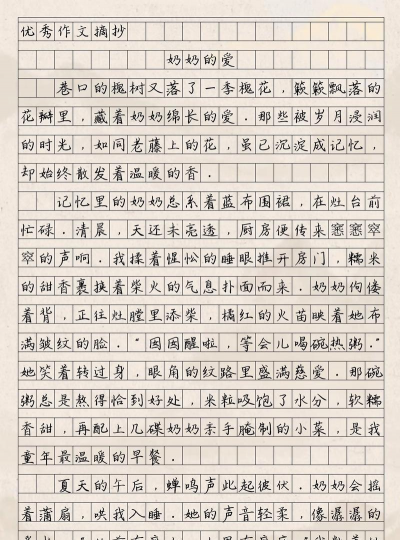 优秀作文摘抄
奶奶的爱
巷口的槐树又落了一季槐花，簌簌飘落的
花瓣里，藏着奶奶绵长的爱.那些被岁月浸润
的时光，如同老藤上的花，虽已沉淀成记忆，
却始终散发着温暖的香.
记忆里的奶奶总系着蓝布围裙，在灶台前
忙碌.清晨，天还未亮透，厨房便传来窸窸窣
窣的声响.我揉着惺忪的睡眼推开房门，糯米
的甜香裹挟着柴火的气息扑面而来.奶奶佝偻
着背，正往灶膛里添柴，橘红的火苗映着她布
满皱纹的脸."囡囡醒啦，等会儿喝碗热粥."
她笑着转过身，眼角的纹路里盛满慈爱.那碗
粥总是熬得恰到好处，米粒吸饱了水分，软糯
香甜，再配上几碟奶奶亲手腌制的小菜，是我
童年最温暖的早餐.
夏天的午后，蝉鸣声此起彼伏.奶奶会摇
着蒲扇，哄我入睡.她的声音轻柔，像潺潺的